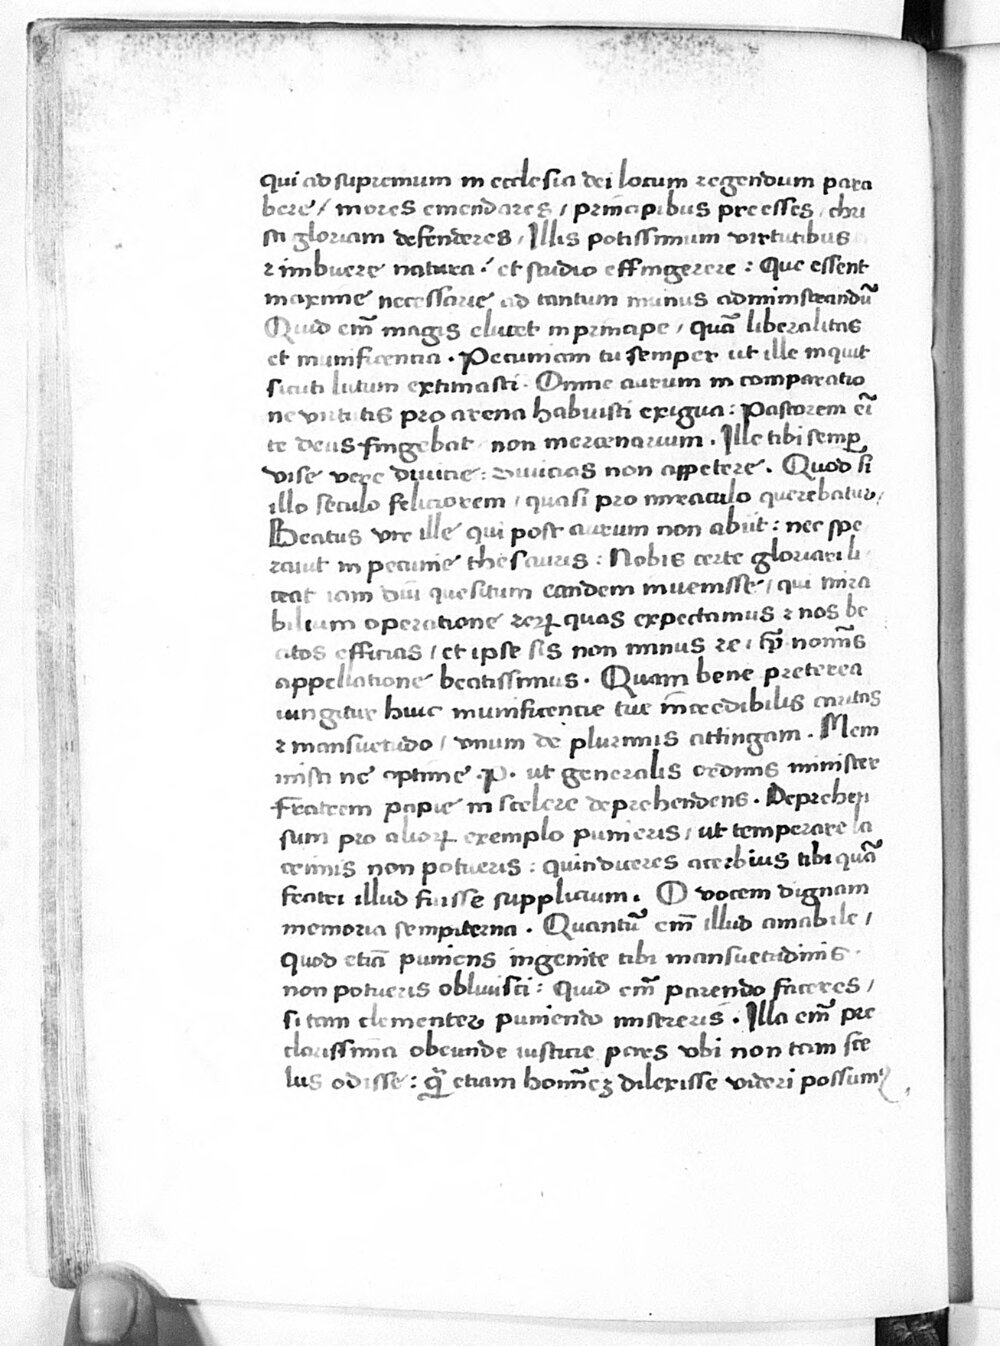 qui ad supremum in ecclesia dei locum regendum para
bere / mores emendares / principibus preesses / chri
sti gloriam defenderes / Illis potissimum virtutibus
⁊ imbuere natura / et studio effingerere : Que essent
maxime necessarie ad tantum munus administrandū
Quid em̄ magis elucet in principe / quā liberalitas
et munificentia . Pecuniam tu semper ut ille inquit
sicuti lutum extimasti . Omne aurum in comparatio
ne virtutis pro arena habuisti exigua : Pastorem ei
te deus fingebat non mercenarium . Ille tibi semper
vise vere divitie : divitias non appetere . Quod si
illo seculo feliciorem / quasi pro miraculo querebatur /
Beatus vir ille qui post aurum non abiit : nec spe
ravit in pecunie thesauris : Nobis certe gloriari li
ceat iam diu quesitum eandem invenisse / qui mira
bilium operatione rerꝝ quas expectamus ⁊ nos be
atos efficias / et ipse sis non minus re / qꝫ nominis
appellatione beatissimus . Quam bene preterea
iungitur huic munificentie tue incredibilis caritas
⁊ mansuetudo / unum de plurimis attingam . Mem
inisti ne optime . P . ut generalis ordinis minister
fratrem papie in scelere deprehendens . Deprehen
sum pro alioꝝ exemplo punieris / ut temperare la
crimis non potueris : quin diceres acerbius tibi quā
fratri illud fuisse supplicium . O vocem dignam
memoria sempiterna . Quantū em̄ illud amabile /
quod etiā puniens ingenite tibi mansuetudinis
non potueris oblivisci : Quid em̄ parendo faceres /
si tam clementer puniendo misereris . Illa em̄ pre
clarissima obeunde iusticie pares ubi non tam sce
lus odisse : q̄ etiam homīeꝫ dilexisse videri possumꝰ